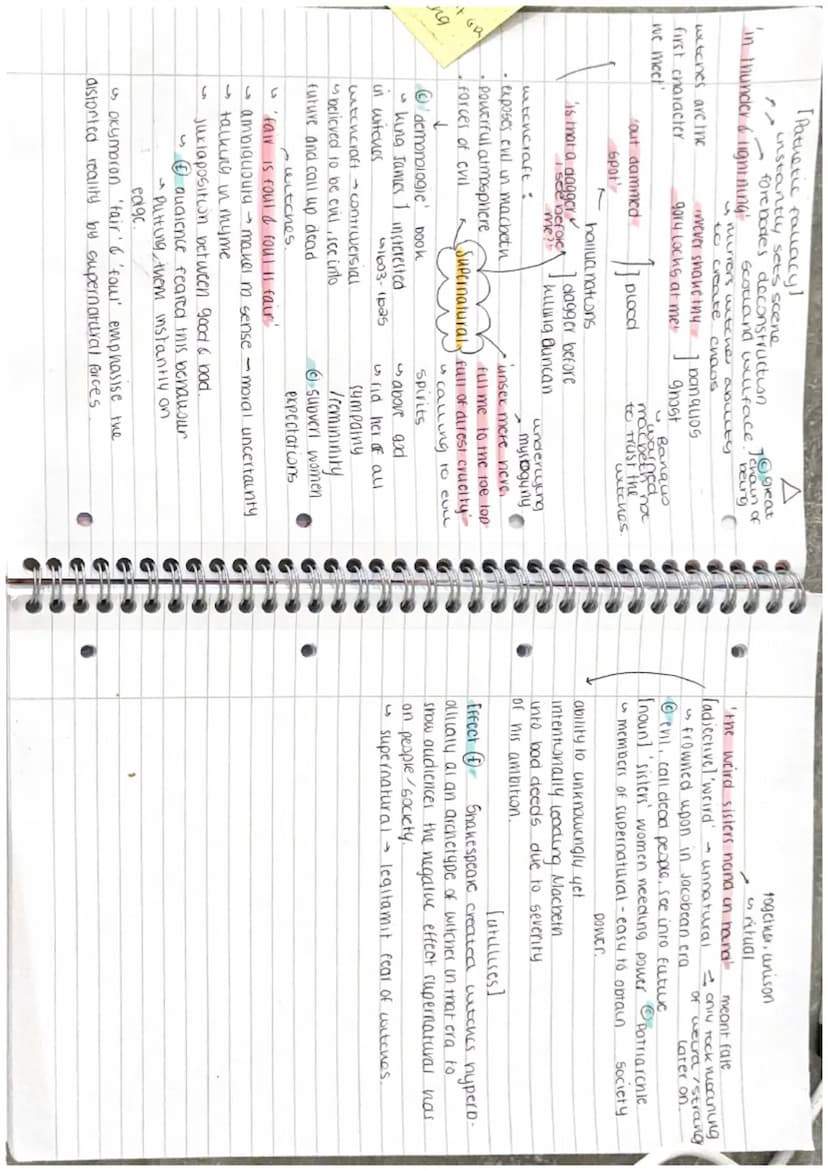 [Pathetic fallacy]
↗ instantly sets scene
↗ forebodes deconstruction
Scotland will face.
] © great
chain of
being
'in thunder & lightning'
↳ mirrors witches ability
to create chaos
witches are the
first character
we meet'
'never shake thy
gory locks at me'
] banquos
ghost
↳ Banquo
warned
macbeth not
to trust the
witches.
'out dammed
spot'
] blood
hallucinations
'is that a dagger
I see before
me?'
] dagger before
killing Duncan
witchcraft:
· exposes evil in macbeth
· powerful atmosphere
· forces of evil
supernatural
underlying
mysogyny
'unsex mere here,
fill me to the toe top
full of direst cruelty'
↳ calling to evil
spirits
↳ above god
↳ rid her of all
sympathy
/femininity
© subvert women
expectations
© 'demonologie' book
↳ King James 1 insterested
in witches ↳ 1603-1625
witchcraft → controversial
↳ believed to be evil, see into
future and call up dead
witches
↳ 'fair is foul & foul is fair'
↳ ambiguouity → makes no sense → moral uncertainty
↳ talking in rhyme
↳ juxtaposition between good & bad.
↳ Ⓔ audience feared this behaviour
→ Putting them instantly on
edge.
↳ oxymoron 'fair' & 'foul' emphasise the
distorted reality by supernatural forces.
together, unison
↳ ritual
'the weird sisters hand in hand'
meant fate
[adjective] 'weird' → unnatural → only took meaning
of weird/strange
later on.
↳ frowned upon in Jacobean era
© evil, call dead people, see into future
[noun] 'sisters' women needing power © Patriarchle
society
↳ members of supernatural - easy to obtain
power.
ability to unknowingly yet
intentionally leading Macbeth
into bad deeds due to severity
of his ambition.
[utillises]
Effect Ⓔ Shakespeare created witches hyperb-
olically as an archetype of witches in that era to
show audiences the negative effect supernatural has
on people/society.
↳ supernatural → legitamit fear of witches.